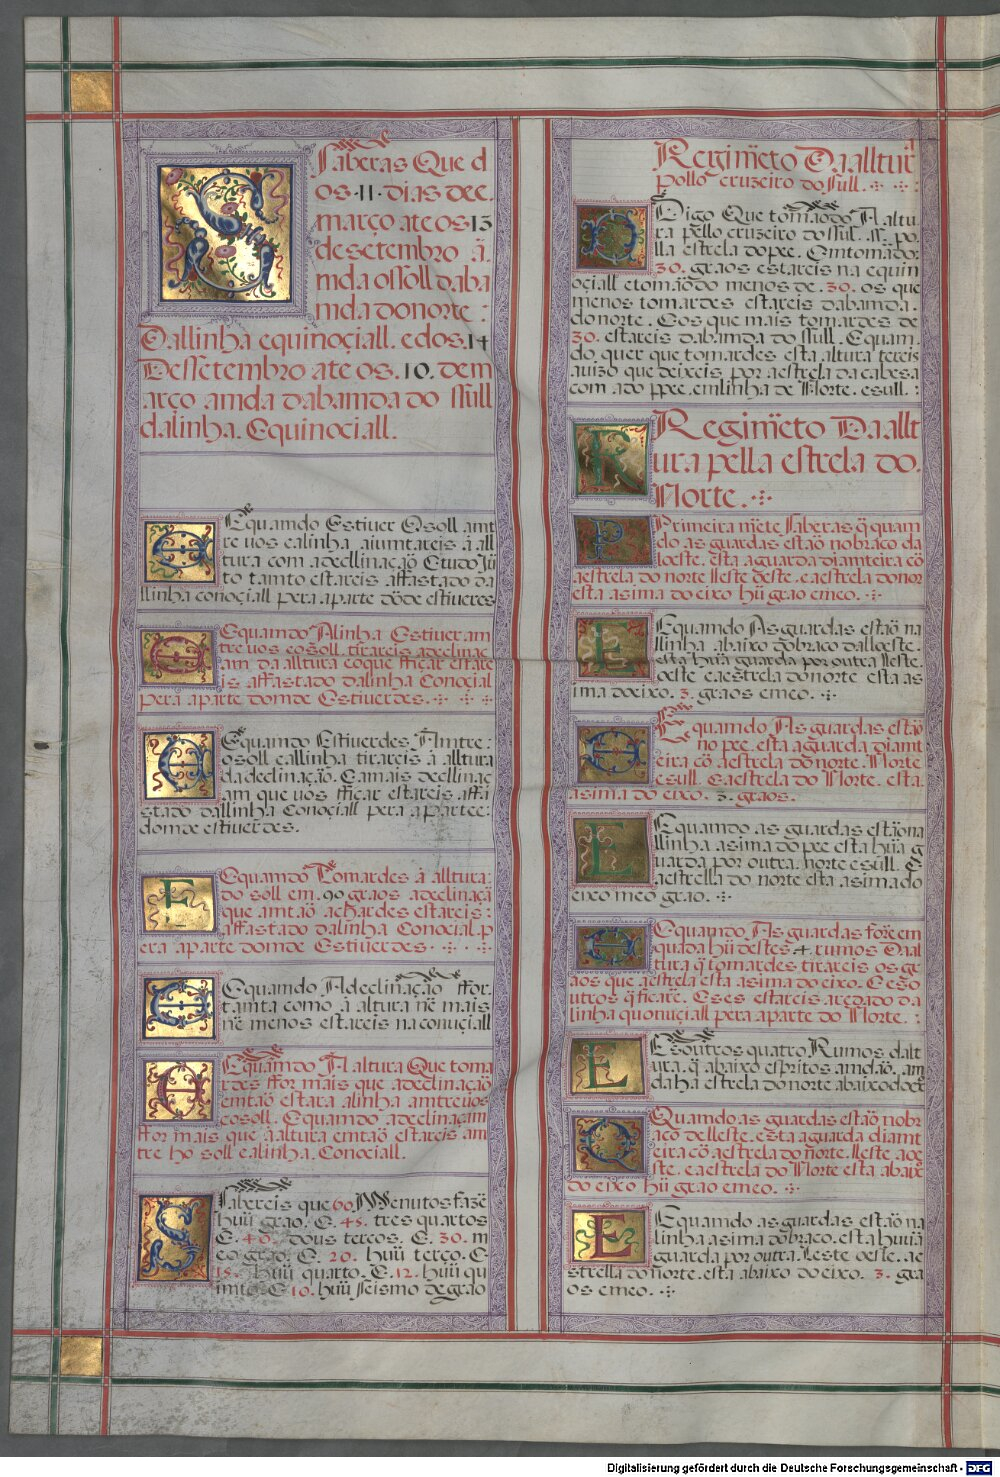 Saberas Que d
os .11. dias de
março ate os 13
de setembro ã
mda o ssoll daba
mda do norte :
Dallinha equinoçiall. e dos .14
Dessetembro ate os .10. de m
arço amda dabamda do ssull
dalinha. Equinociall.
Equamdo Estiuer Osoll amt
re uos ealinha aiumtareis ã all
tura com adecllinaçaõ Etudo Jũ
to tamto estareis affastado da
llinha conoçiall pera aparte dõde estiueres
Equamdo Alinha Estiuer am
tre uos eosoll. tirareis adeclinaç
am da alltura eoque fficar estare
is affastado dalinha Conoçial
pera aparte domde Estiuerdes.
Equamdo Estiuerdes Amtre :
osoll eallinha tirareis ã alltura
da declinaçaõ. E amais decllinaç
am que uos fficar estareis affa
stado dallinha Conoçiall pera aparte
domde estiuerdes.
Equamdo Tomardes ã alltura :
do soll em .90 graos adeclinaçã
que amtaõ achardes estareis :
affastado dalinha Conocial .p
era aparte domde Estiuerdes .
Equamdo Adeclinaçaõ ffor.
tamta como ã altura nẽ mais
nẽ menos estareis naconuçiall
Equamdo Altura Que toma
rdes ffor mais que adeclinaçaõ
emtaõ estara alinha amtreuos
eosoll. Equamdo adeclinaçam
ffor mais que ã altura emtaõ estareis am
tre ho soll ealinha. Conoçiall.
Sabereis que 60. Menutos fazẽ
huũ grao. E. 45. tres quartos
E. 40. dous terços. E. 30. m
eo grao. E. 20. huũ terço. E
15. huũ quarto. E. 12. huũ qu
imto. E 10. huũ seismo de grao
Regimẽto Da alltur
pollo cruzeiro do ssull.
Digo Que tomaõdo Aaltu
ra pello cruzeiro do sul. ss. po
lla estrela do pee. Em tomado
30. graos estareis na equin
ociall etomaõdo menos de .30. os que
menos tomardes estareis dabamda.
donorte. Eos que mais tomardes de
30. estareis dabamda do ssull. Equam
do quer que tomardes esta altura tereis
auiso que deixeis por aestrela da cabesa
com ado ppee. emlinha de Norte. esull :
Regimẽto Da allt
ura pella estrela do.
Norte.
Primeira mẽte saberas q̃ quam
do as guardas estaõ nobraco da
loeste. esta aguarda diamteira cõ
aestrela do norte lleste oeste. eaestrela donor
esta asima do eixo hũ grao emeo.
Equamdo As guardas estaõ na
llinha abaixo dobraço dalloeste.
esta huã guarda por outra lleste.
oeste eaestrela donorte esta as
ima doeixo. 3. graos emeo.
Equamdo As guardas estaõ
no pee. esta aguarda diamt
eira cõ aestrela do norte Norte
esull. Eaestrela do Norte. esta.
asima do eixo. 3. graos.
Equamdo as guardas estaõna
llinha asima do pee esta huã g
uarda por outra. norte esull. E
aestrella do norte esta asima do
eixo meo grao.
Equamdo As guardas forẽ em
quada hũ destes .4. rumos Daal
tura q̃ tomardes tirareis os gr
aos que aestrela esta asima do eixo. E eso
utros q̃ ficarẽ. Eses estareis aredado da
linha quonuçiall pera aparte do Norte. :
Esoutros quatro Rumos dalt
ura. q̃ abaixo espritos amdaõ. am
da ha estrela do norte abaixo do ex
Quamdo as guardas estaõ nobr
acõ delleste. esta aguarda diamt
eira cõ aestrela do norte. lleste aoe
ste. eaestrela do Norte esta abaix
do eixo hũ grao emeo.
Equamdo as guardas estaõ na
linha asima dobraco. esta huuã
guarda por outra. Leste oeste. ae
strella do norte. esta abaixo do eixo. 3. gra
os emeo.
Digitalisierung gefördert durch die Deutsche Forschungsgemeinschaft - DFG